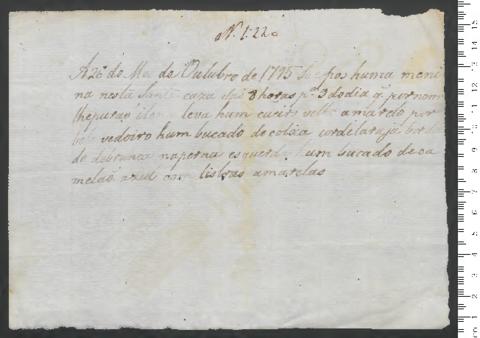 N. 122
A 26 do Mez do Outubro de 1775 Se espos huma meni
na nesta Santa caza das 8 horas p.ª 3 do dia q̃ por nom
lhe puzes leva hum cueiro velho amarelo por
vedoiro hum bucado de colxa cordelaranja borda
do debranca naperna esquerda hum bucado de ca
melaõ azul com listras amarelas